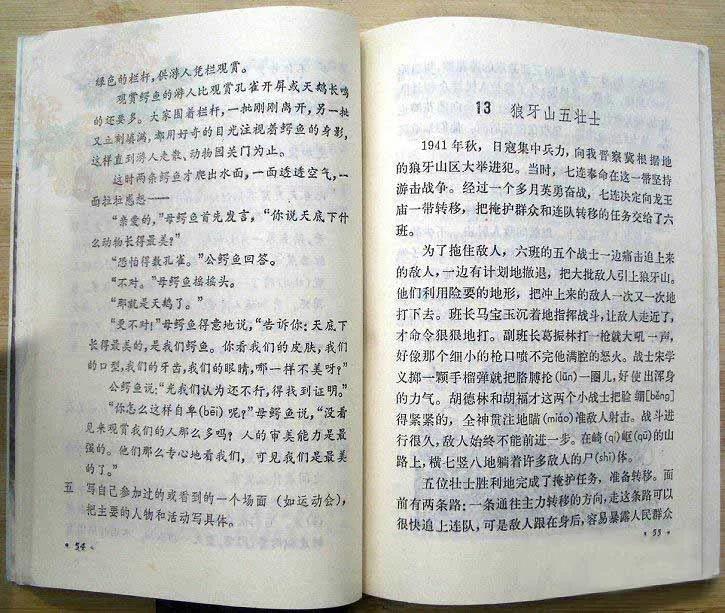 绿色的栏杆，供游人凭栏观赏。
观赏鳄鱼的游人比观赏孔雀开屏或天鹅长鸣
的还要多。大家围着栏杆，一批刚刚离开，另一批
又立刻填满，都用好奇的目光注视着鳄鱼的身影，
这样直到游人走散、动物园关门为止。
这时两条鳄鱼才爬出水面，一面透透空气，一
面拉拉感想——
“亲爱的，”母鳄鱼首先发言，“你说天底下什
么动物长得最美？”
“恐怕得数孔雀。”公鳄鱼回答。
“不对。”母鳄鱼摇摇头。
“那就是天鹅了。”
“更不对！”母鳄鱼得意地说，“告诉你：天底下
长得最美的，是我们鳄鱼。你看我们的皮肤，我们
的口型，我们的牙齿，我们的眼睛，哪一样不美呀？”
公鳄鱼说：“光我们认为还不行，得找到证明。”
“你怎么这样自卑（bēi）呢？”母鳄鱼说，“没看
见来观赏我们的人那么多吗？人的审美能力是最
强的。他们那么专心地看我们，可见我们是最美
的了。”
五 写自己参加过的或看到的一个场面（如运动会），
把主要的人物和活动写具体。
· 54 ·
13 狼牙山五壮士
1941年秋，日寇集中兵力，向我晋察冀根据地
的狼牙山区大举进犯。当时，七连奉命在这一带坚持
游击战争。经过一个多月英勇奋战，七连决定向龙王
庙一带转移，把掩护群众和连队转移的任务交给了六
班。
为了拖住敌人，六班的五个战士一边痛击追上来
的敌人，一边有计划地撤退，把大批敌人引上狼牙山。
他们利用险要的地形，把冲上来的敌人一次又一次地
打下去。班长马宝玉沉着地指挥战斗，让敌人走近了，
才命令狠狠地打。副班长葛振林打一枪就大吼一声，
好像那个细小的枪口喷不完他满腔的怒火。战士宋学
义掷一颗手榴弹就把胳膊抡（lūn）一圈儿，好使出浑身
的力气。胡德林和胡福才这两个小战士把脸绷[běng]
得紧紧的，全神贯注地瞄（miáo）准敌人射击。战斗进
行很久，敌人始终不能前进一步。在崎（qí）岖（qū）的山
路上，横七竖八地躺着许多敌人的尸（shī）体。
五位壮士胜利地完成了掩护任务，准备转移。面
前有两条路：一条通往主力转移的方向，走这条路可以
很快追上连队，可是敌人跟在身后，容易暴露人民群众
· 55 ·